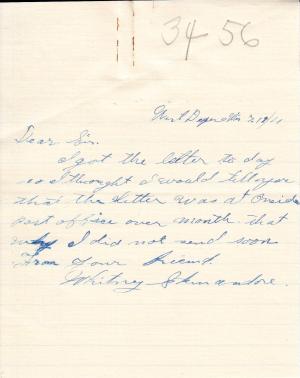 34 56
West Depere Wis
Dear Sir.
I got the letter to day
so I thought I would tell you
that the letter was at Oneida
post office over month that
why I did not send soon
From your friend
Whitney